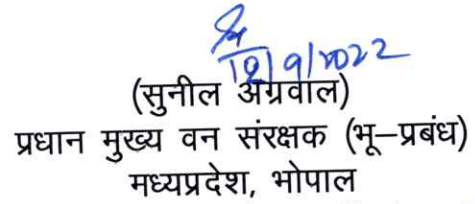 9/2022
(सुनील अग्रवाल)
प्रधान मुख्य वन संरक्षक (भू–प्रबंध)
मध्यप्रदेश, भोपाल